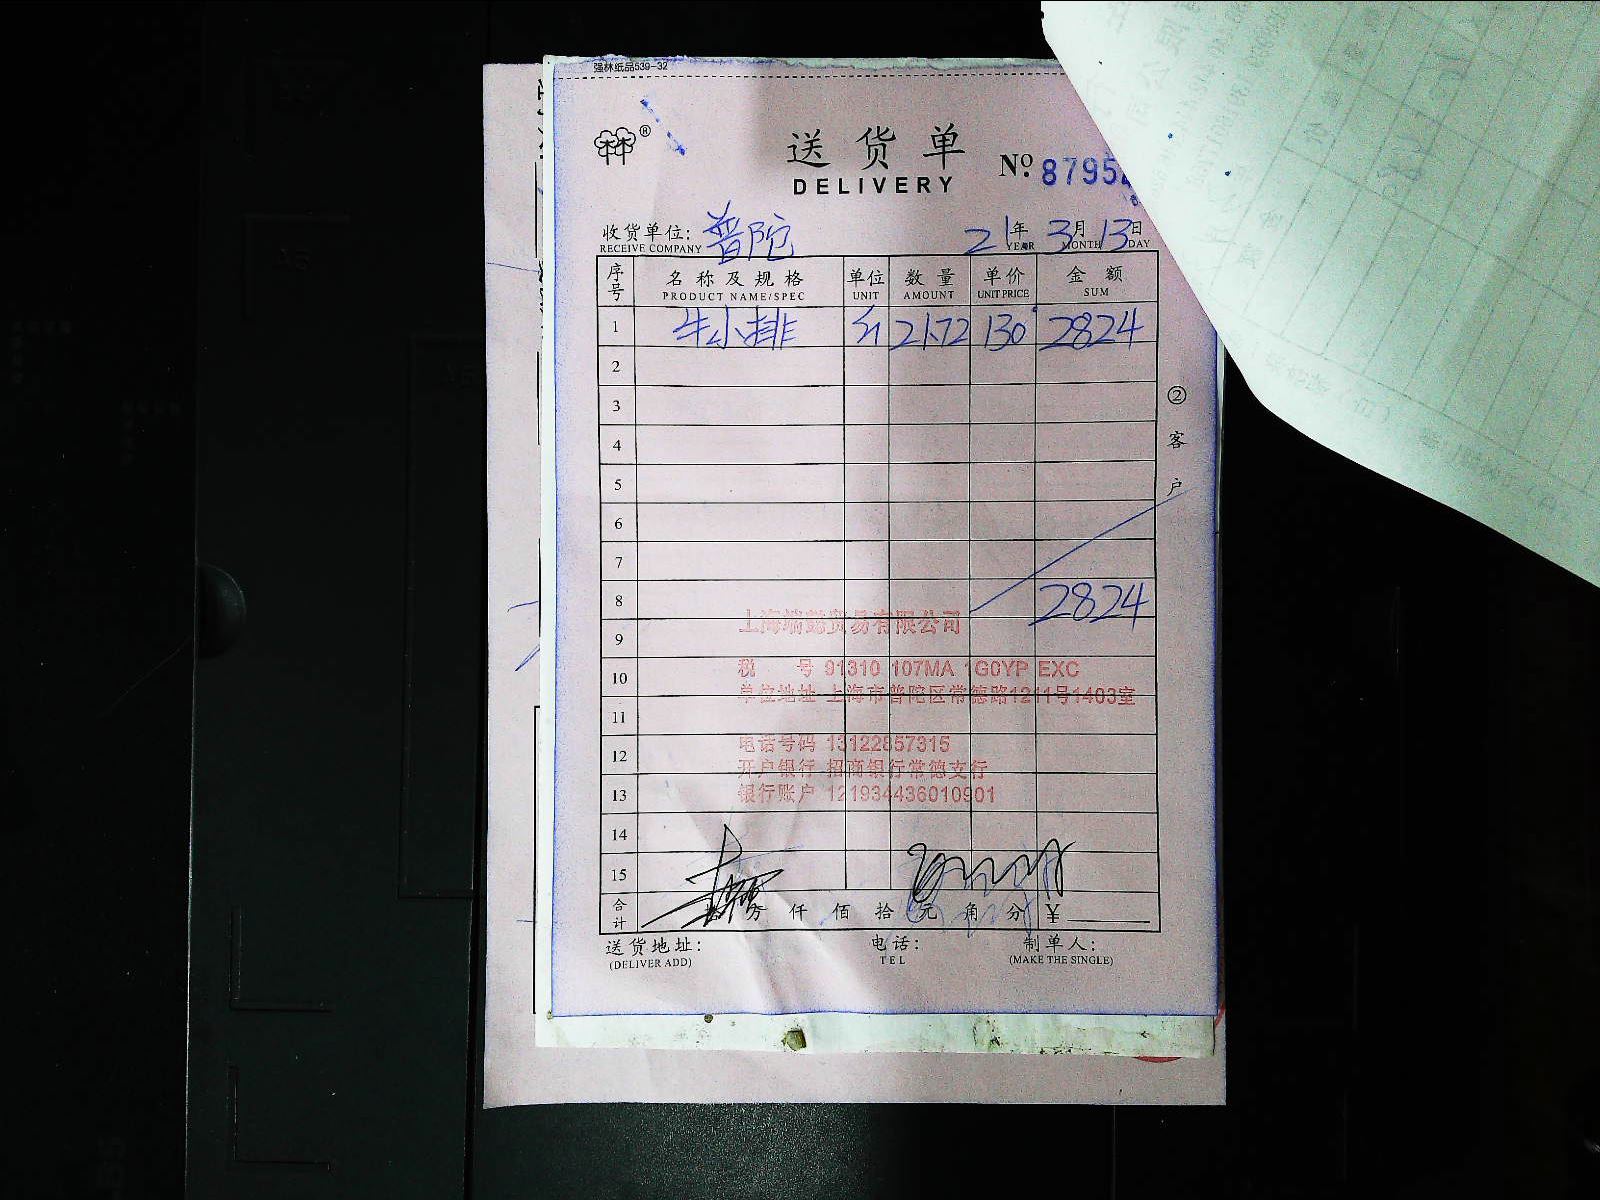 强林纸品539-32
送货单
DELIVERY
No. 8795
收货单位: 普陀 21年 3月 13日
RECEIVE COMPANY YEAR MONTH DAY
序号 名称及规格 单位 数量 单价 金额
PRODUCT NAME/SPEC UNIT AMOUNT UNIT PRICE SUM
1 牛小排 斤 21.72 130 2824
2
3
4
5
6
7
8 2824
9
10
11
12
13
14
15
②客户
上海端懿贸易有限公司
税 号 91310 107MA 1G0YP EXC
单位地址 上海市普陀区常德路1211号1403室
电话号码 13122857315
开户银行 招商银行常德支行
银行账户 121934436010901
合计 拾 万 仟 佰 拾 元 角 分 ¥
送货地址: 电话: 制单人:
(DELIVER ADD) TEL (MAKE THE SINGLE)